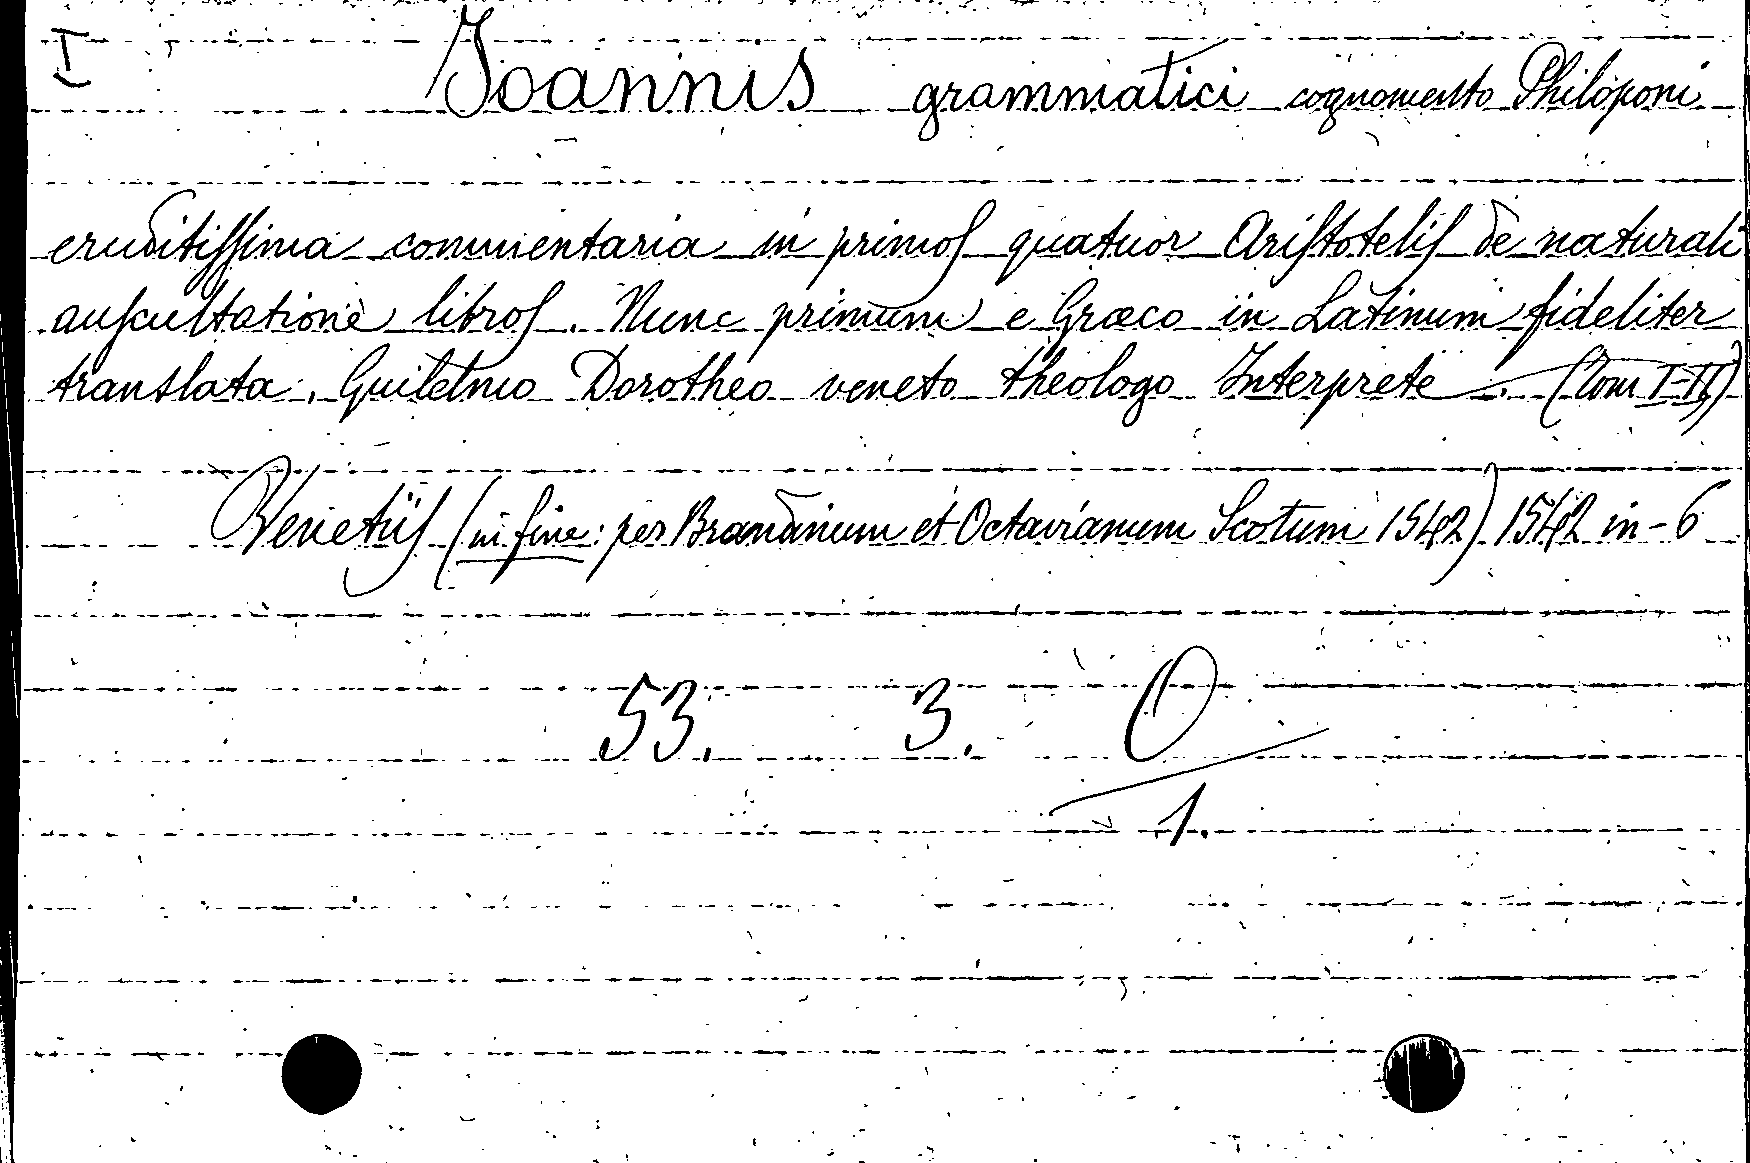 I Joannis grammatici cognomento Philoponi
eruditiſſima commentaria in primoſ quatuor Ariſtoteliſ de naturali
auſcultatione libroſ. Nunc primum e Græco in Latinum fideliter
translata. Guilelmo Dorotheo veneto theologo Interprete. (Tom I-II)
Venetiiſ (in fine: per Brandinum et Octavianum Scotum 1542) 1542 in-6
53. 3. O
1.